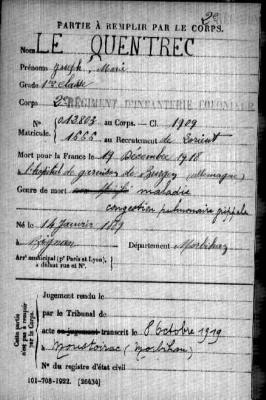 2e
PARTIE À REMPLIR PAR LE CORPS.
Nom LE QUENTREC
Prénoms Joseph, Marie
Grade 1ère classe
Corps 2e RÉGIMENT D'INFANTERIE COLONIALE
N° 013803 au Corps. — Cl. 1909
Matricule. 1666 au Recrutement de Lorient
Mort pour la France le 19 Décembre 1918
l'hôpital de garnison de (Allemagne)
Genre de mort maladie
congestion pulmonaire grippale
Né le 14 Janvier
à Bignan Département Morbihan
Arrt municipal (pr Paris et Lyon),
à défaut rue et N°.
Cette partie n'est pas à remplir par le Corps.
Jugement rendu le
par le Tribunal de
acte ou jugement transcrit le 8 Octobre 1919
à Moustoirac (Morbihan)
N° du registre d'état civil
101-708-1922. [26434]